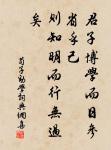 君子博學而日參
省乎己
則知明而行無過
矣
荀子勸學詞典網集